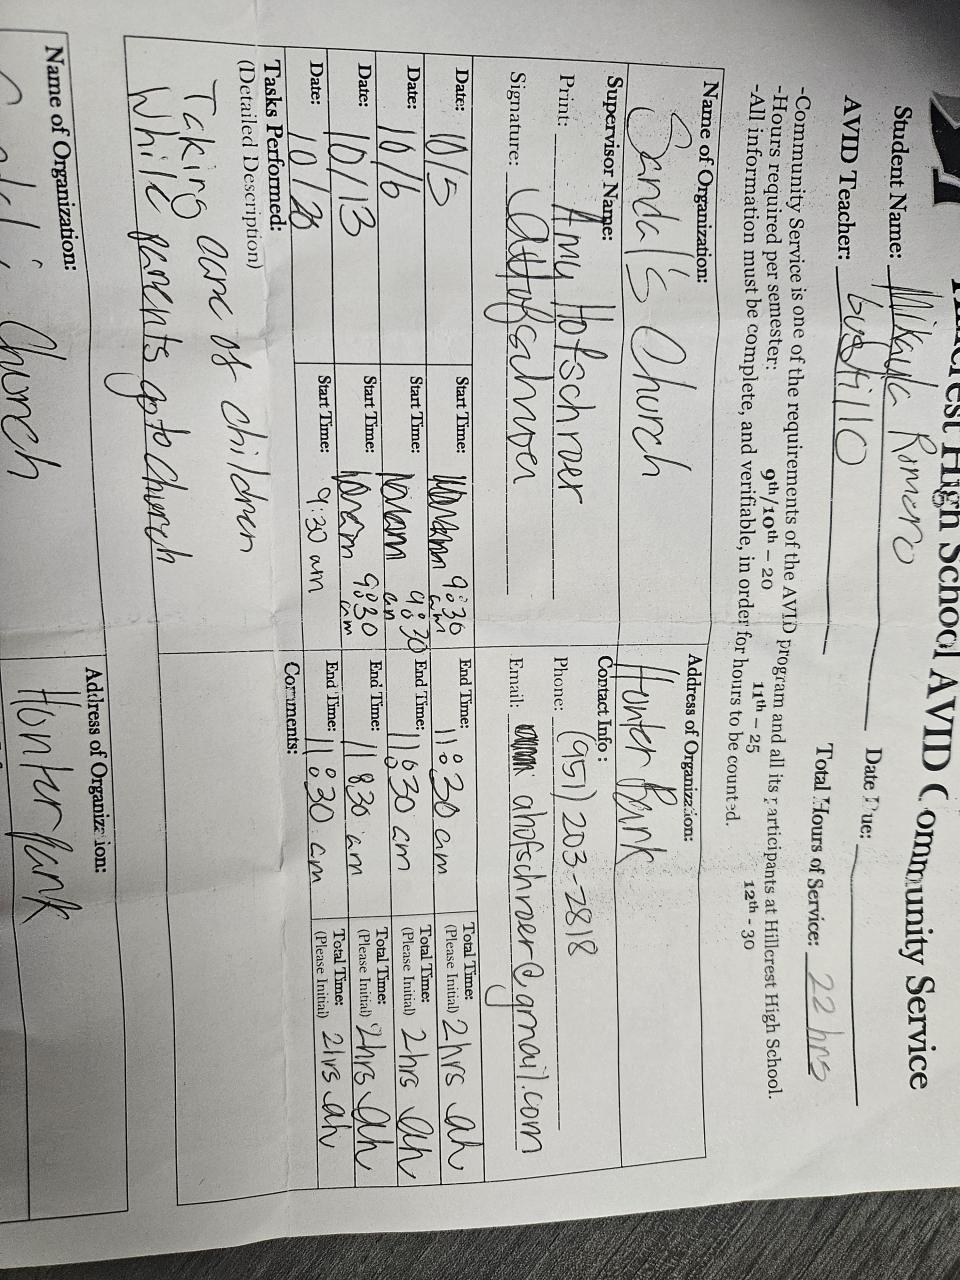 Hillcrest High School AVID Community Service
Student Name: Mikayla Romero Date Due:
AVID Teacher: Bustillo Total Hours of Service: 22 hrs
-Community Service is one of the requirements of the AVID program and all its participants at Hillcrest High School.
-Hours required per semester: 9th/10th – 20 11th – 25 12th - 30
-All information must be complete, and verifiable, in order for hours to be counted.
Name of Organization: Address of Organization:
Sandal's Church Hunter Park
Supervisor Name: Contact Info:
Print: Amy Hofschroer Phone: (951) 203-2818
Signature: Email: ahofschroer@gmail.com
Date: 10/5 Start Time: 9:30 am End Time: 11:30 am Total Time: 2hrs ah
(Please Initial)
Date: 10/6 Start Time: 9:30 am End Time: 11:30 am Total Time: 2hrs ah
(Please Initial)
Date: 10/13 Start Time: 9:30 am End Time: 11:30 am Total Time: 2hrs ah
(Please Initial)
Date: Start Time: 9:30 am End Time: 11:30 am Total Time: 2hrs ah
(Please Initial)
Tasks Performed: Comments:
(Detailed Description)
Taking care of children
While parents go to church
Name of Organization: Address of Organization:
Church Hunter Park